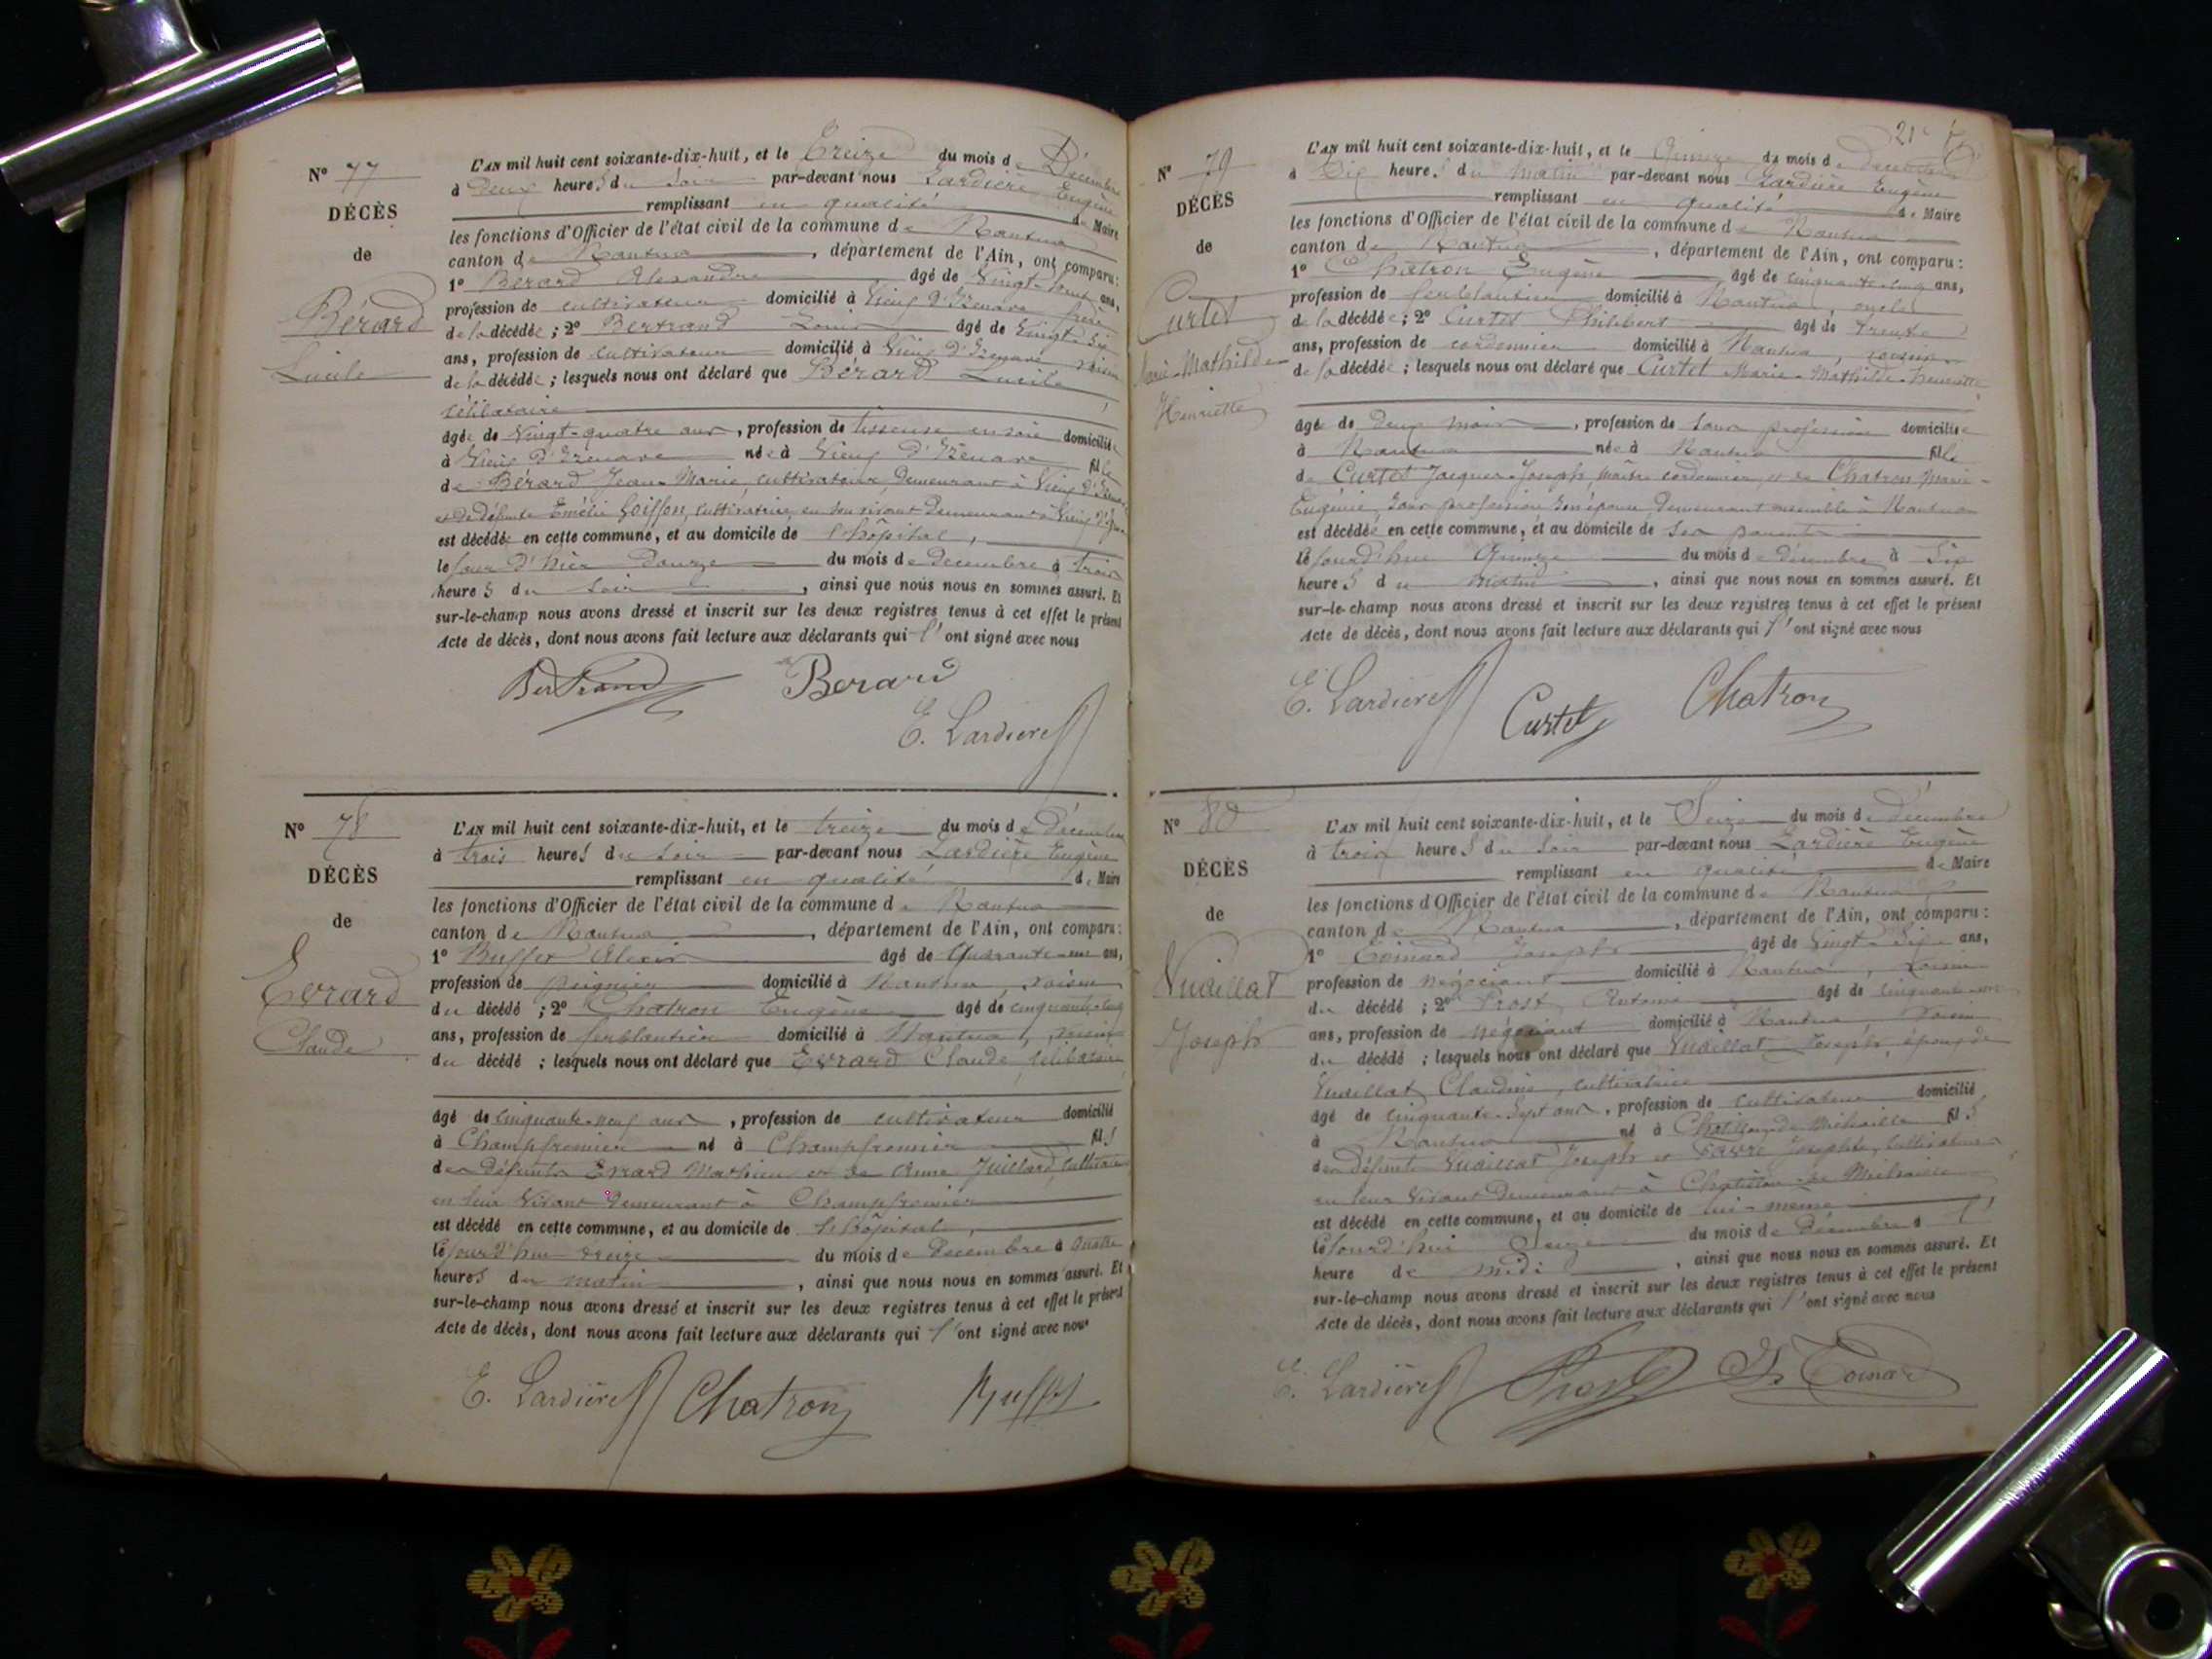 N° 77
DÉCÈS
de
Bérard
Lucile
L'AN mil huit cent soixante-dix-huit, et le Treize du mois de Décembre
à Deux heures du soir par-devant nous Lardière Eugène
remplissant en qualité de Maire
les fonctions d'Officier de l'état civil de la commune de Nantua
canton de Nantua, département de l'Ain, ont comparu:
1° Bérard Alexandre âgé de Vingt- ans,
profession de cultivateur domicilié à Vieux d'Izenave frère
de la décédée; 2° Bertrand Louis âgé de Vingt-Six
ans, profession de cultivateur domicilié à Vieux d'Izenave voisin
de la décédée; lesquels nous ont déclaré que Bérard Lucile
célibataire
âgée de Vingt-quatre ans, profession de tisseuse en soie domiciliée
à Vieux d'Izenave née à Vieux d'Izenave fille
de Bérard Jean-Marie, cultivateur, demeurant à Vieux d'Izenave
et de défunte Emélie Goiffon, cultivatrice, en son vivant demeurant à Vieux d'Izenave
est décédée en cette commune, et au domicile de l'hôpital,
le jour d'hier douze du mois de décembre à trois
heures du soir, ainsi que nous nous en sommes assuré. Et
sur-le-champ nous avons dressé et inscrit sur les deux registres tenus à cet effet le présent
Acte de décès, dont nous avons fait lecture aux déclarants qui l'ont signé avec nous
Bertrand Berard
E. Lardière
N° 78
DÉCÈS
de
Evrard
Claude
L'AN mil huit cent soixante-dix-huit, et le treize du mois de Décembre
à trois heures du soir par-devant nous Lardière Eugène
remplissant en qualité de Maire
les fonctions d'Officier de l'état civil de la commune de Nantua
canton de Nantua, département de l'Ain, ont comparu:
1° Buffet Alexis âgé de Quarante- ans,
profession de peignier domicilié à Nantua, voisin
du décédé; 2° Chatron Eugène âgé de cinquante-cinq
ans, profession de ferblantier domicilié à Nantua, voisin
du décédé; lesquels nous ont déclaré que Evrard Claude, célibataire
âgé de cinquante-neuf ans, profession de cultivateur domicilié
à Champfromier né à Champfromier fils
des défunts Evrard Mathieu et de Anne Juillard, cultivateurs
en leur vivant demeurant à Champfromier
est décédé en cette commune, et au domicile de l'hôpital,
le jourd'hui treize du mois de Décembre à quatre
heures du matin, ainsi que nous nous en sommes assuré. Et
sur-le-champ nous avons dressé et inscrit sur les deux registres tenus à cet effet le présent
Acte de décès, dont nous avons fait lecture aux déclarants qui l'ont signé avec nous
E. Lardière Chatron Buffet
21
N° 79
DÉCÈS
de
Curtet
Marie-Mathilde
Henriette
L'AN mil huit cent soixante-dix-huit, et le Quinze du mois de Décembre
à Dix heures du matin par-devant nous Lardière Eugène
remplissant en qualité de Maire
les fonctions d'Officier de l'état civil de la commune de Nantua
canton de Nantua, département de l'Ain, ont comparu:
1° Chatron Eugène âgé de cinquante-cinq ans,
profession de ferblantier domicilié à Nantua, oncle
de la décédée; 2° Curtet Philibert âgé de trente
ans, profession de cordonnier domicilié à Nantua, cousin
de la décédée; lesquels nous ont déclaré que Curtet Marie-Mathilde-Henriette
âgée de deux mois, profession de sans profession domiciliée
à Nantua née à Nantua fille
de Curtet Jacques-Joseph, maître cordonnier, et de Chatron Marie-
Eugénie, sans profession, son épouse, demeurant ensemble à Nantua
est décédée en cette commune, et au domicile de ses parents
le jourd'hui Quinze du mois de décembre à Six
heures du matin, ainsi que nous nous en sommes assuré. Et
sur-le-champ nous avons dressé et inscrit sur les deux registres tenus à cet effet le présent
Acte de décès, dont nous avons fait lecture aux déclarants qui l'ont signé avec nous
E. Lardière Curtet Chatron
N° 80
DÉCÈS
de
Vuaillat
Joseph
L'AN mil huit cent soixante-dix-huit, et le Seize du mois de Décembre
à trois heures du soir par-devant nous Lardière Eugène
remplissant en qualité de Maire
les fonctions d'Officier de l'état civil de la commune de Nantua
canton de Nantua, département de l'Ain, ont comparu:
1° Toinard Joseph âgé de Vingt-Six ans,
profession de négociant domicilié à Nantua, voisin
du décédé; 2° Prost Antoine âgé de cinquante-
ans, profession de négociant domicilié à Nantua voisin
du décédé; lesquels nous ont déclaré que Vuaillat Joseph, époux de
Vuaillat Claudine, cultivatrice
âgé de cinquante-Sept ans, profession de cultivateur domicilié
à Nantua né à Chatillon de Michaille fils
des défunts Vuaillat Joseph et Favre Josephte, cultivateurs
en leur vivant demeurant à Chatillon de Michaille
est décédé en cette commune, et au domicile de lui-même
le jourd'hui Seize du mois de Décembre à l'
heure de midi, ainsi que nous nous en sommes assuré. Et
sur-le-champ nous avons dressé et inscrit sur les deux registres tenus à cet effet le présent
Acte de décès, dont nous avons fait lecture aux déclarants qui l'ont signé avec nous
E. Lardière Prost Jh Toinard